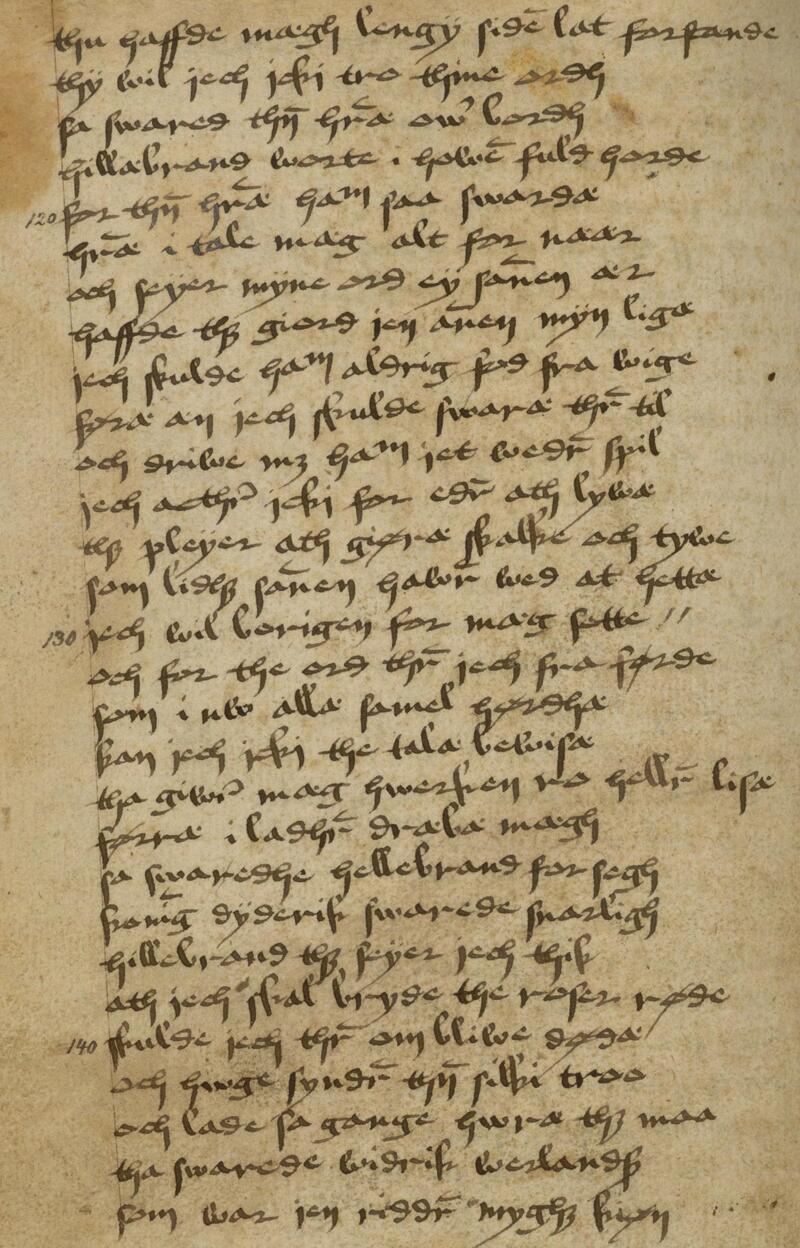 thu haffde mægh lengy sidē lat forstande
thÿ wil jech jcki tro thine ordh
sa swared thn̄ hr̄æ ow' bordh
hillæbrand worte i howē fuld horde
120 for thn̄ hr̄æ ham saa swardæ
hr̄æ i tale mæg alt for naar
och seyer myne ord ey san̄en ær
haffde thz giord jen an̄en myn ligæ
jech skulde ham aldrig fod fra wige
føræ æn jech skulde swaræ thr̄ til
och driwe mz ham jet wedr̄ spil
jech acthr̄ jcki for edr̄ ath lywæ
thz pleyer ath giøræ skalke och tywe
som lidhz san̄en hawr̄ wed at hettæ
130 jech wil borigen for mæg sette //
och for the ord thr̄ jech fra førde
som i nw allæ samel hørdhæ
kan jech jcki the talæ bewisæ
tha giwr̄ mæg hwerken ro hellr̄ lisæ
førræ i ladhr̄ dræbæ mægh
sa swaredhe hellebrand for segh
konīg dÿderik swarede snarligh
hillebrand thz seyer jech thik
ath jech skal bryde the roser røde
140 skulde jech thr̄ om bliwe dødæ
och hwge syndr̄ thn̄ silki troo
och lade sa gange hwræ thz maa
tha swarede widrik werlandz
som war jen riddr̄ myghz kiøn